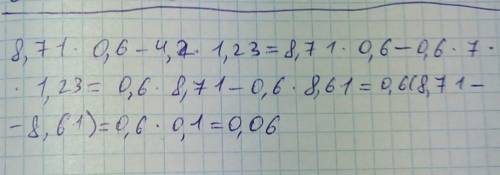 8,71 · 0,6 - 4,2 · 1,23 = 8,71 · 0,6 - 0,6 · 7 ·
· 1,23 = 0,6 · 8,71 - 0,6 · 8,61 = 0,6(8,71 -
- 8,61) = 0,6 · 0,1 = 0,06